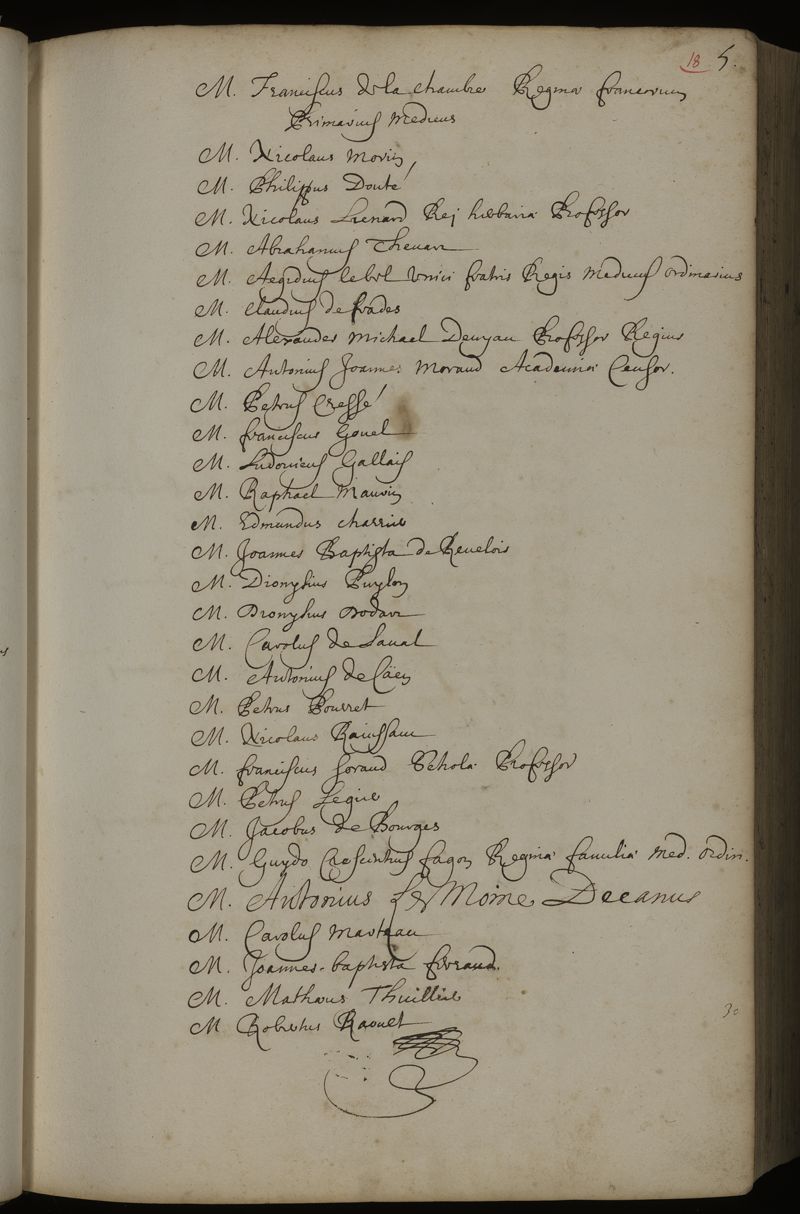 18 5.
M. Franciscus de la Chambre Reginæ francorum
Primarius Medicus
M. Nicolaus Morin
M. Philippus Douté
M. Nicolaus Lienard Rej herbariæ Professor
M. Abrahamus Thevart
M. Aegidius lebel Unici fratris Regis Medicus ordinarius
M. Claudius de frades
M. Alexander Michael Denyau Professor Regius
M. Antonius Joannes Morand Academiæ Censor.
M. Petrus Cressé
M. franciscus Gouel
M. Ludovicus Gallais
M. Raphael Mauvin
M. Edmundus Charrier
M. Joannes Baptista de Revelois
M. Dionysius Puylon
M. Dionysius Dodart
M. Carolus de Laval
M. Antonius de Caen
M. Petrus Pourret
M. Nicolaus Rainssant
M. franciscus Scholæ Professor
M. Petrus Legier
M. Jacobus de Bourges
M. Guydo Crescentius fagon Reginæ familiæ Med. ordin.
M. Antonius Le Moine Decanus
M. Carolus Marteau
M. Joannes-baptista ferrand.
M. Mathæus Thuillier
M Robertus Raoult
30